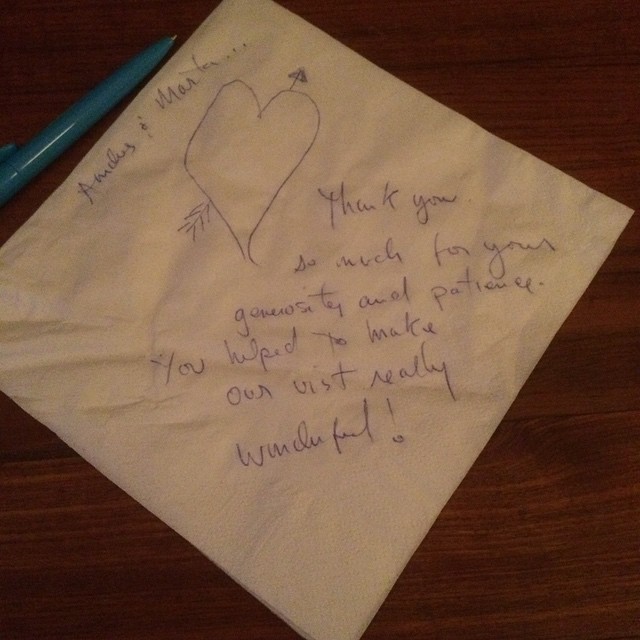 Thank you
so much for your
generosity and patience.
You helped to make
our vist really
wonderful!